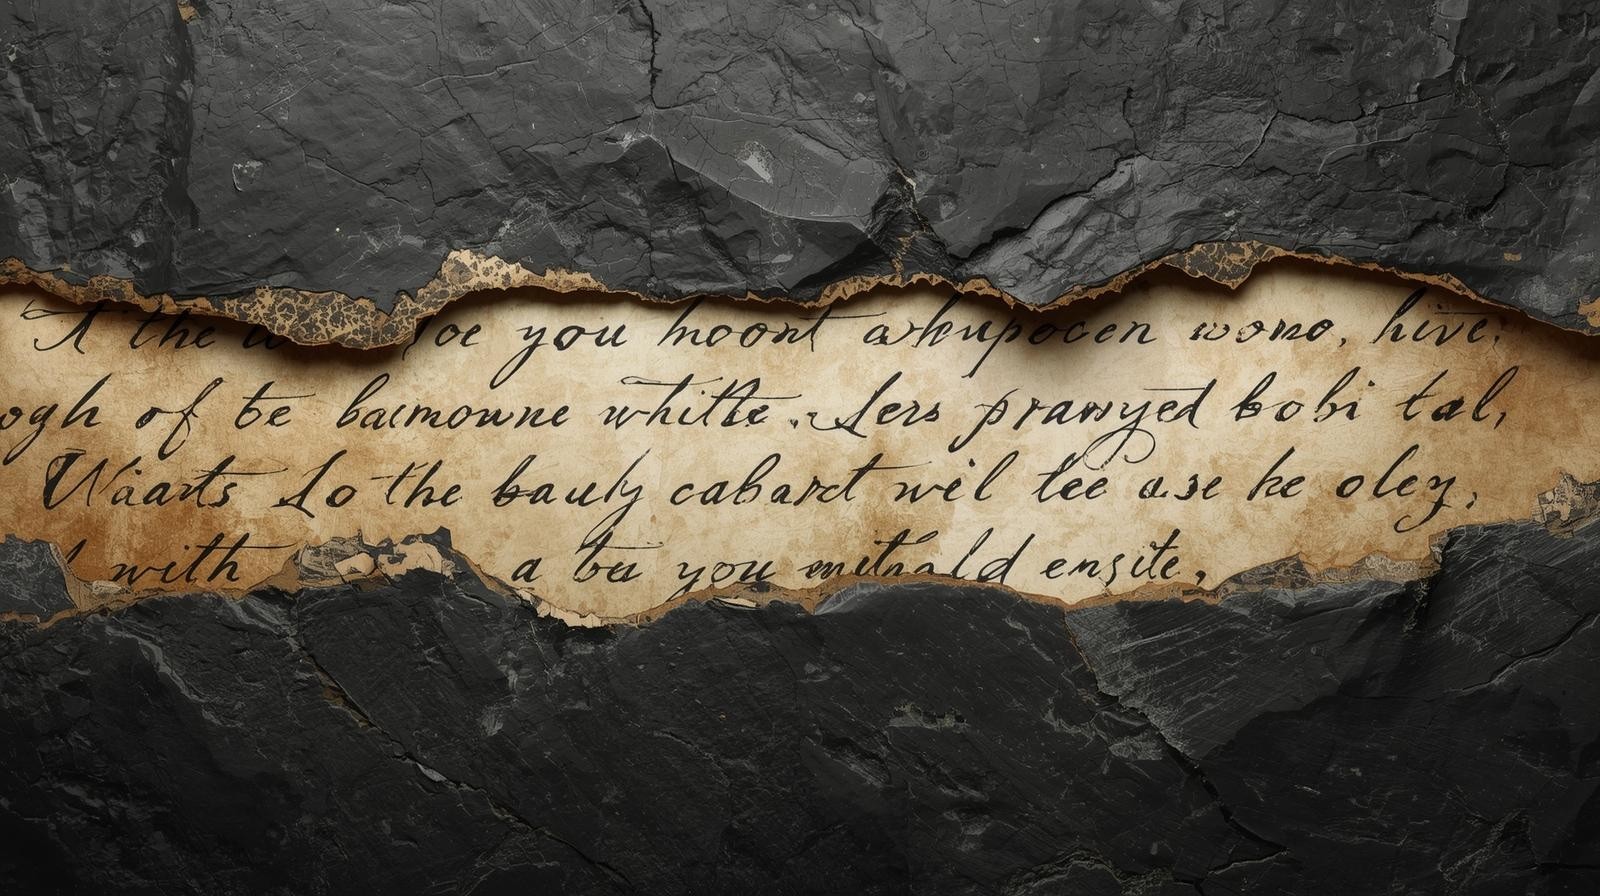 A the you hoont akupocen wono, hive:
ogh of be baımowne whitte. Sers prawyed bobi tal,
Waarts Lo the bauly cabart wil tee ase ke oley,
with a you ensite,